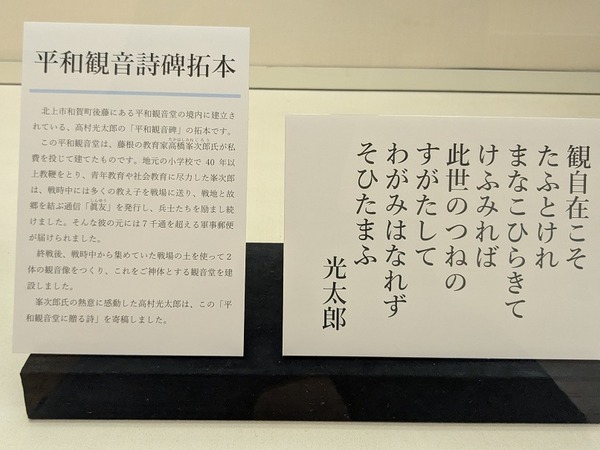 平和観音詩碑拓本
北上市和賀町後藤にある平和観音堂の境内に建立さ
れている、高村光太郎の「平和観音碑」の拓本です。
この平和観音堂は、藤根の教育家高橋峯次郎氏が私
費を投じて建てたものです。地元の小学校で40年以
上教鞭をとり、青年教育や社会教育に尽力した峯次郎
は、戦時中には多くの教え子を戦場に送り、戦地と故
郷を結ぶ通信「眞友」を発行し、兵士たちを励まし続
けました。そんな彼の元には7千通を超える軍事郵便
が届けられました。
終戦後、戦時中から集めていた戦場の土を使って2
体の観音像をつくり、これをご神体とする観音堂を建
設しました。
峯次郎氏の熱意に感動した高村光太郎は、この「平
和観音堂に贈る詩」を寄稿しました。
観自在こそ
たふとけれ
まなこひらきて
けふみれば
此世のつねの
すがたして
わがみはなれず
そひたまふ
光太郎